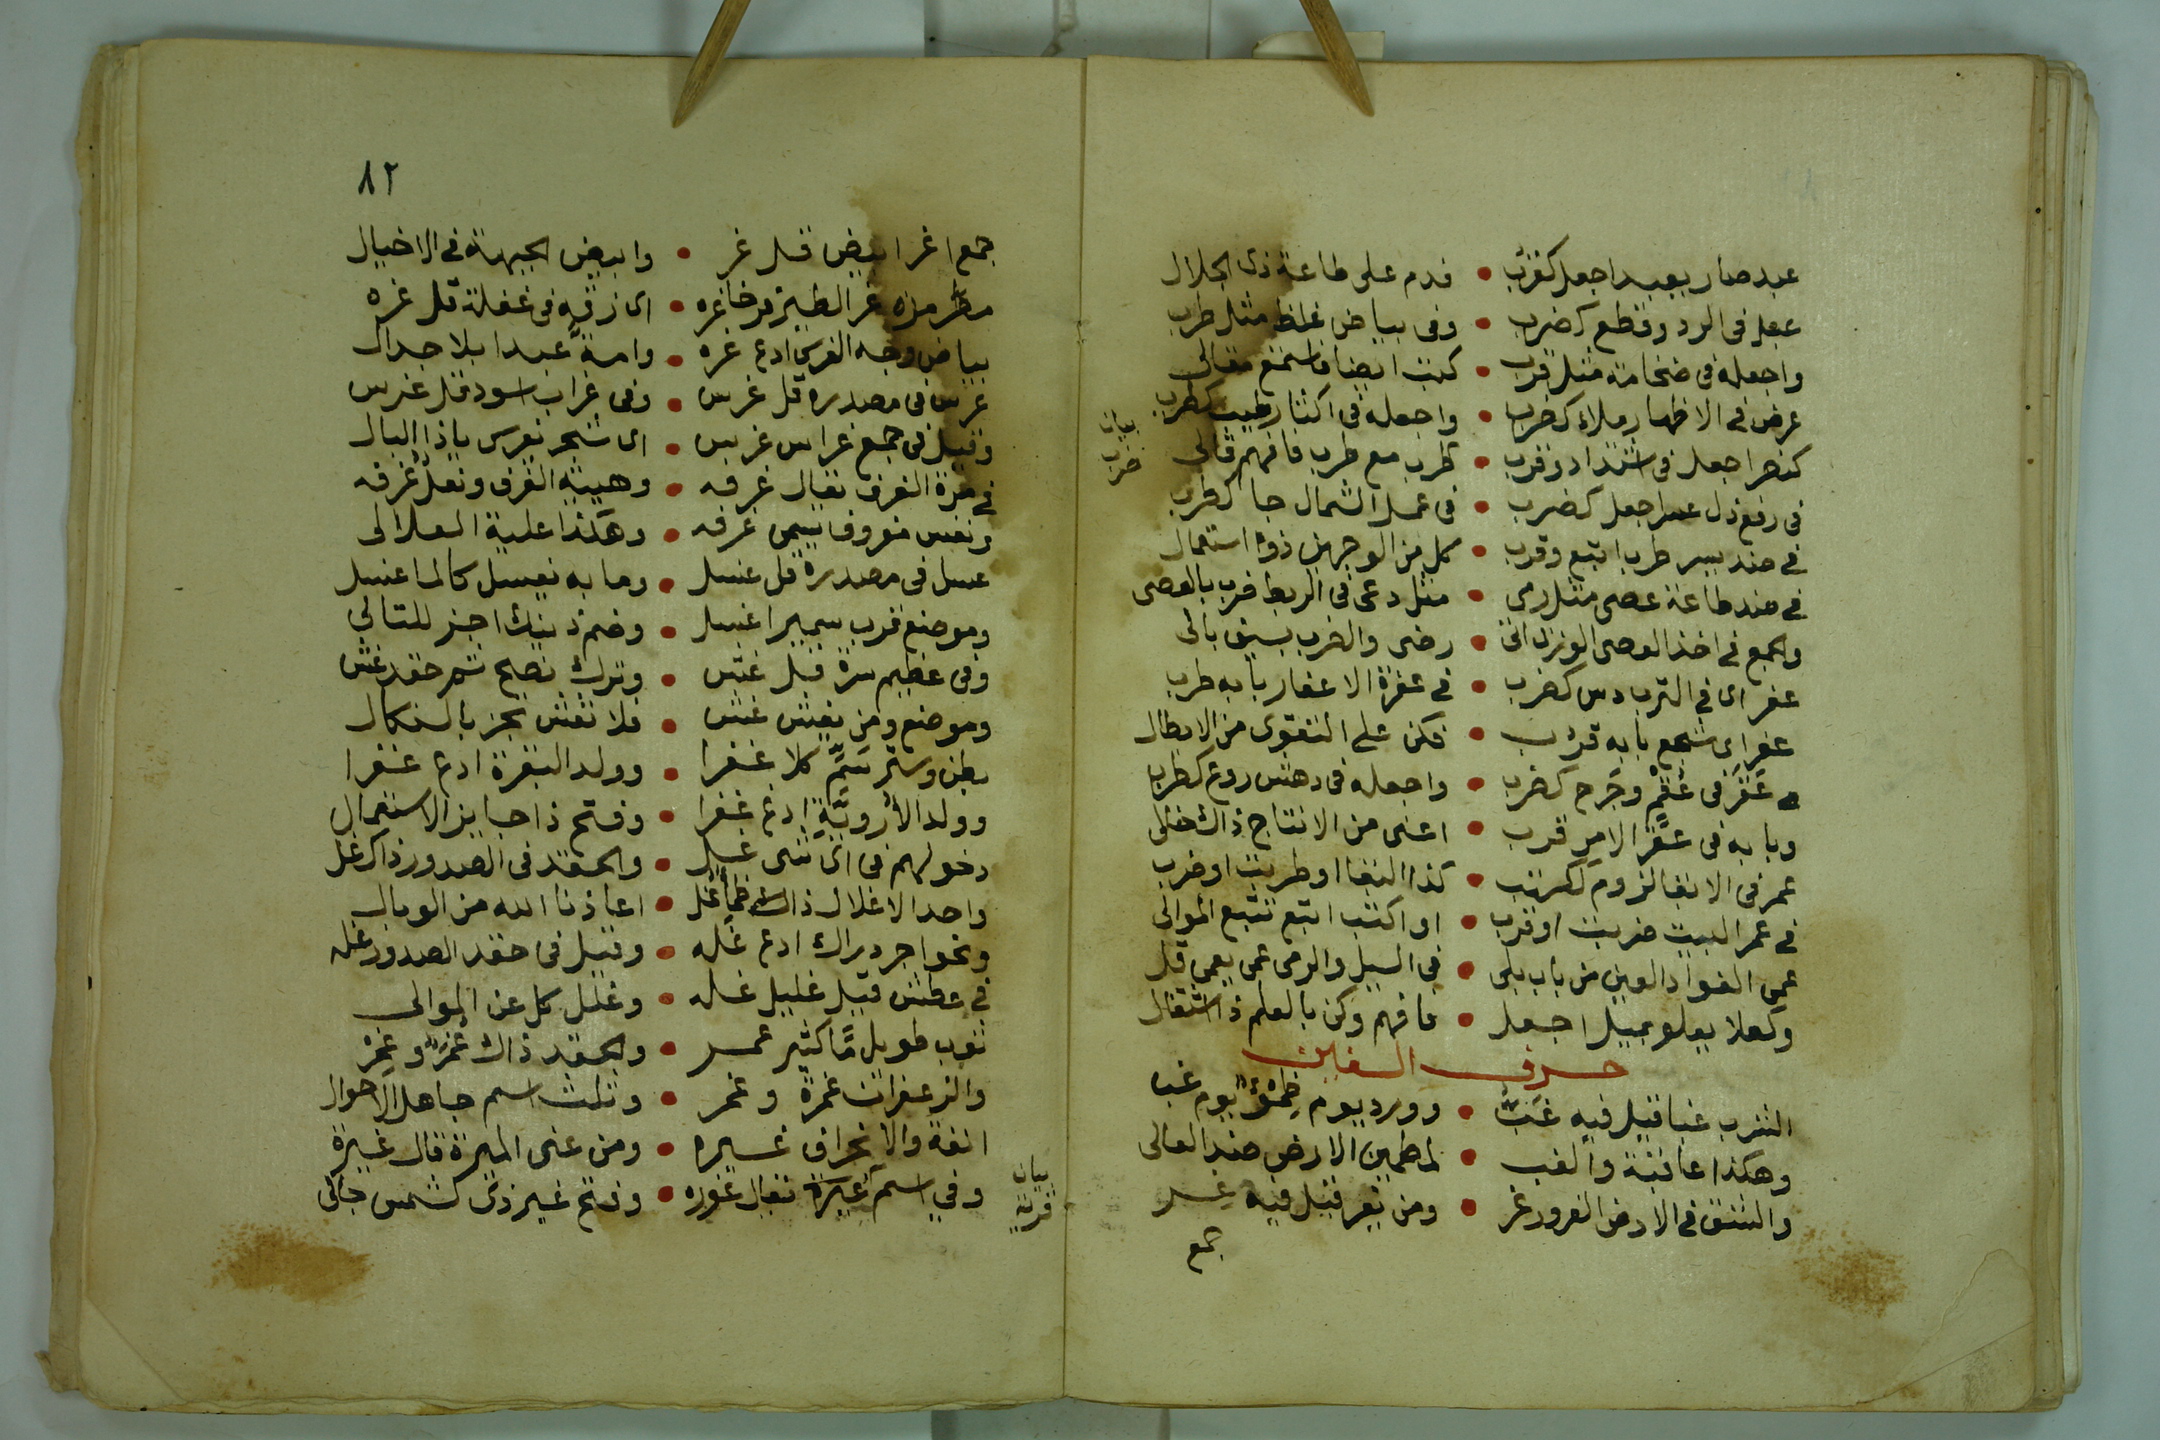 عبد صار يعبد اجعل كقرب • فدم على طاعة ذى الجلال
عجل فى الرد وقطع كضرب • وفى بياض غلظ مثل طرب
واجعله فى ضخامة مثل قرب • كنت ايضا فاستمع مقالى
عرض فى الاظهار ملاء كضرب • واجعله فى اكثار طيب كطرب
اجعل فى اشتداد وقرب • كطرب مع طرب فافهم قالى
فى رفع ذل اجعل كضرب • فى عمل الشمال جا كطرب
فى ضد يسر طرب اتبع وقرب • كل من الوجهين ذو استعمال
فى ضد طاعة عصى مثل رمى • مثل دعى فى الربط ضرب بالعصى
والجمع فى اخذ العصى الوزن اتى • رضى والضرب بسيق بالى
عفر اى فى الترب دس كضرب • فى عفرة الاعفار بابه طرب
عفر اى شجع بابه قرب • فكن على التقوى من الابطال
عقر فى عقم وجرح كضرب • واجعله فى دهش روع كطرب
وبابه فى عقر الامر قرب • اعنى من الانتاج ذاك خالى
عمر فى الابقا لزوم كضرب • كذا البقا او طربت او ضرب
فى عمر البيت ضربت او قرب • او اكتب اتبع تتبع الموالى
عمى الفواد العين من باب بلى • فى السيل والرمى عمى يعمى قل
وكعلا يعلو بميل اجعل • فافهم وكن بالعلم ذا اشتغال
حرف الغين
الشرب غبا قيل فيه غب • وورد يوم ظمؤ يوم غبا
وهكذا عاقبة والغب • لمطمين الارض ضد العالى
والشق فى الارض الغرور غر • ومن يغر قيل فيه غر
جمع
بيان
ضرب
٨٢
جمع اغر ابيض قل غر • وابيض الجبهة فى الاخيال
مرة غر الطير فرخا غره • اى زقه فى غفلة قل غره
بياض وجه الفرس ادع غره • وامة عبدا بلا جدال
غرس فى مصدره قل غرس • وفى غراب اسود قل غرس
وقيل فى جمع غراس غرس • اى شجر يغرس ياذا البال
فى مرة الغرف يقال غرفه • وهيئة الغرف ونعل غرفه
ونفس مغروف يسمى غرفه • وهكذا علية العلالى
غسل فى مصدره قل غسل • وما به يغسل كالما غسل
وموضع قرب سميرا غسل • وضم ذينك اجز للتالى
وفى عظيم سرة قيل غش • وترك نصح ثم حقد غش
وموضع ومن يغش غش • فلا تغش تجز بالنكال
بطن وستر ثم كلا غفرا • وولد البقرة ادع غفرا
وولد الاروية ادع غفرا • وفتح ذا جايز الاستعمال
دخولهم فى اى شى غل • والحقد فى الصدور ذاك غل
واحد الاغلال ذاك ظما غل • اعاذنا الله من الوبال
ونحو اجر ديراك ادع غله • وقيل فى حقد الصدور غله
فى عطش قيل غليل غله • وغلل كل عن الموالى
ثوب طويل ما كثير غمر • والحقد ذاك غمر وغمر
والزعفران غمرة وغمر • وثلث اسم جاهل الاحوال
انفة والانحراف غيره • ومن عنى الميرة قال غيرة
وفى اسم غيرة يقال غوره • وفتح غير ذى كشمس جالى
بيان
قرية